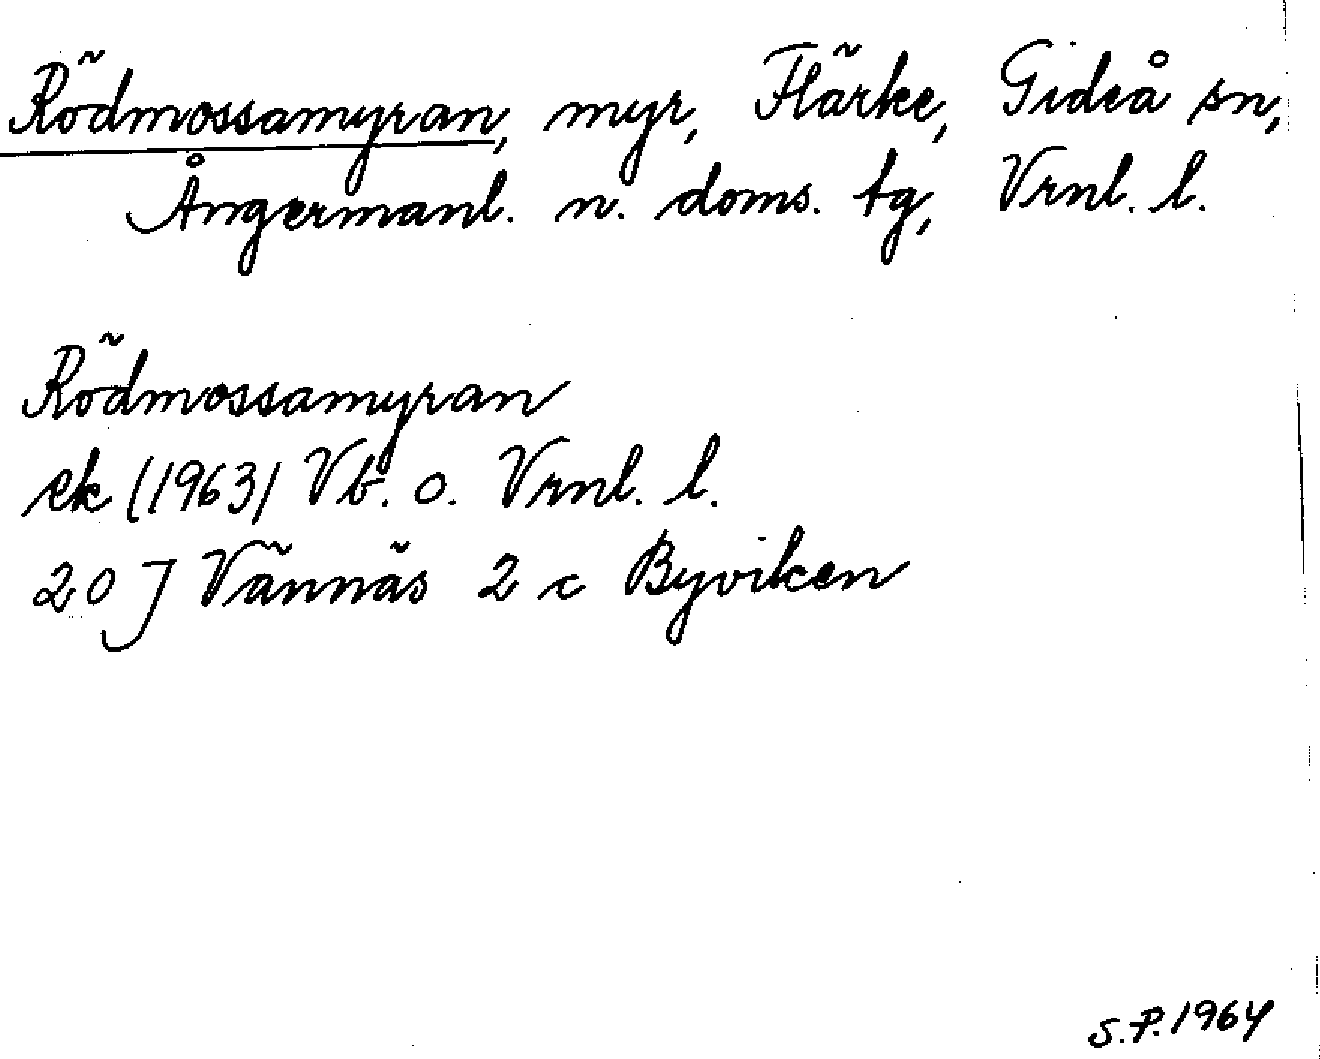 Rödmossamyran, myr, Flärke, Gideå sn,
Ångermanl. n. doms. tg, Vrnl. l.
Rödmossamyran
ek (1963) Vb. o. Vrnl. l.
20 J Vännäs 2 c Byviken
S.P. 1964